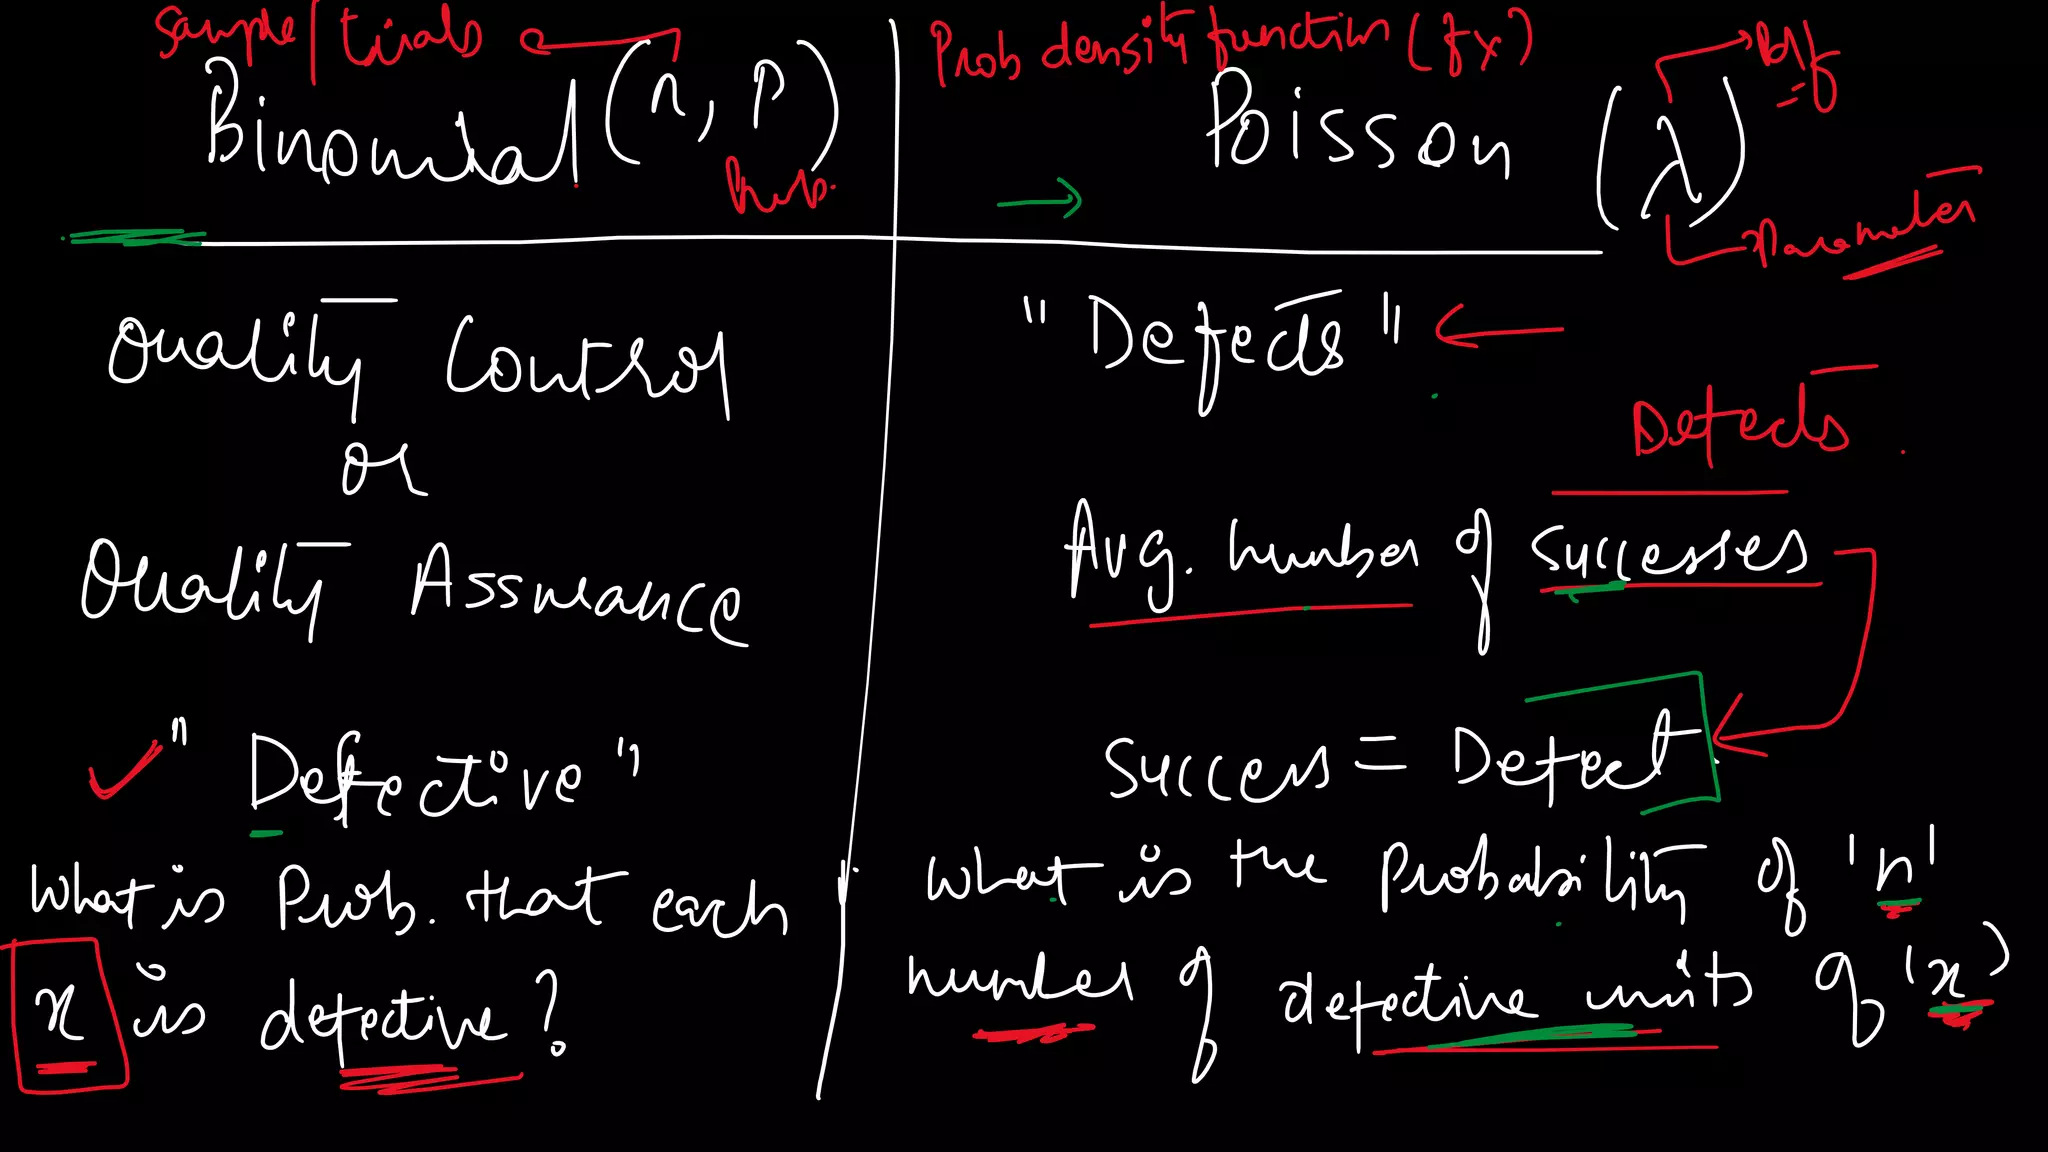 Sample/trials
Binomial (n, p)
Prob.
Quality Control
or
Quality Assurance
"Defective"
What is Prob. that each
x is defective?
Prob density function (fx)
Poisson (λ)
Parameter
"Defects"
Defects
Avg. number of successes
Success = Defect
What is the Probability of 'n'
number of defective units of 'x'